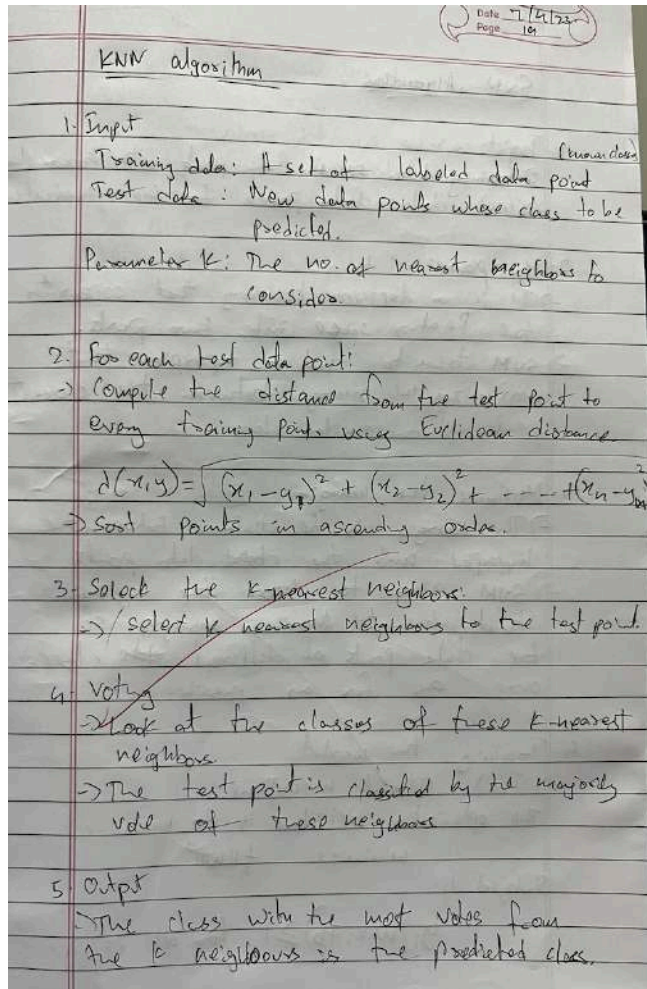 Date 7/4/23
Page 19
KNN algorithm
1. Input
(known class)
Training data: A set of labeled data point
Test data : New data points whose class to be
predicted.
Parameter K: The no. of nearest neighbors to
consider.
2. For each test data point:
-> Compute the distance from the test point to
every training point. using Euclidean distance
d(x,y)=√(x₁-y₁)² + (x₂-y₂)² + ---- +(xn-yn)²
-> Sort points in ascending order.
3. Select the K-nearest neighbors:
-> select K nearest neighbors to the test point.
4. Voting
-> Look at the classes of these K-nearest
neighbors.
-> The test point is classified by the majority
vote of these neighbors
5. Output
-> The class with the most votes from
the K neighbours is the predicted class.